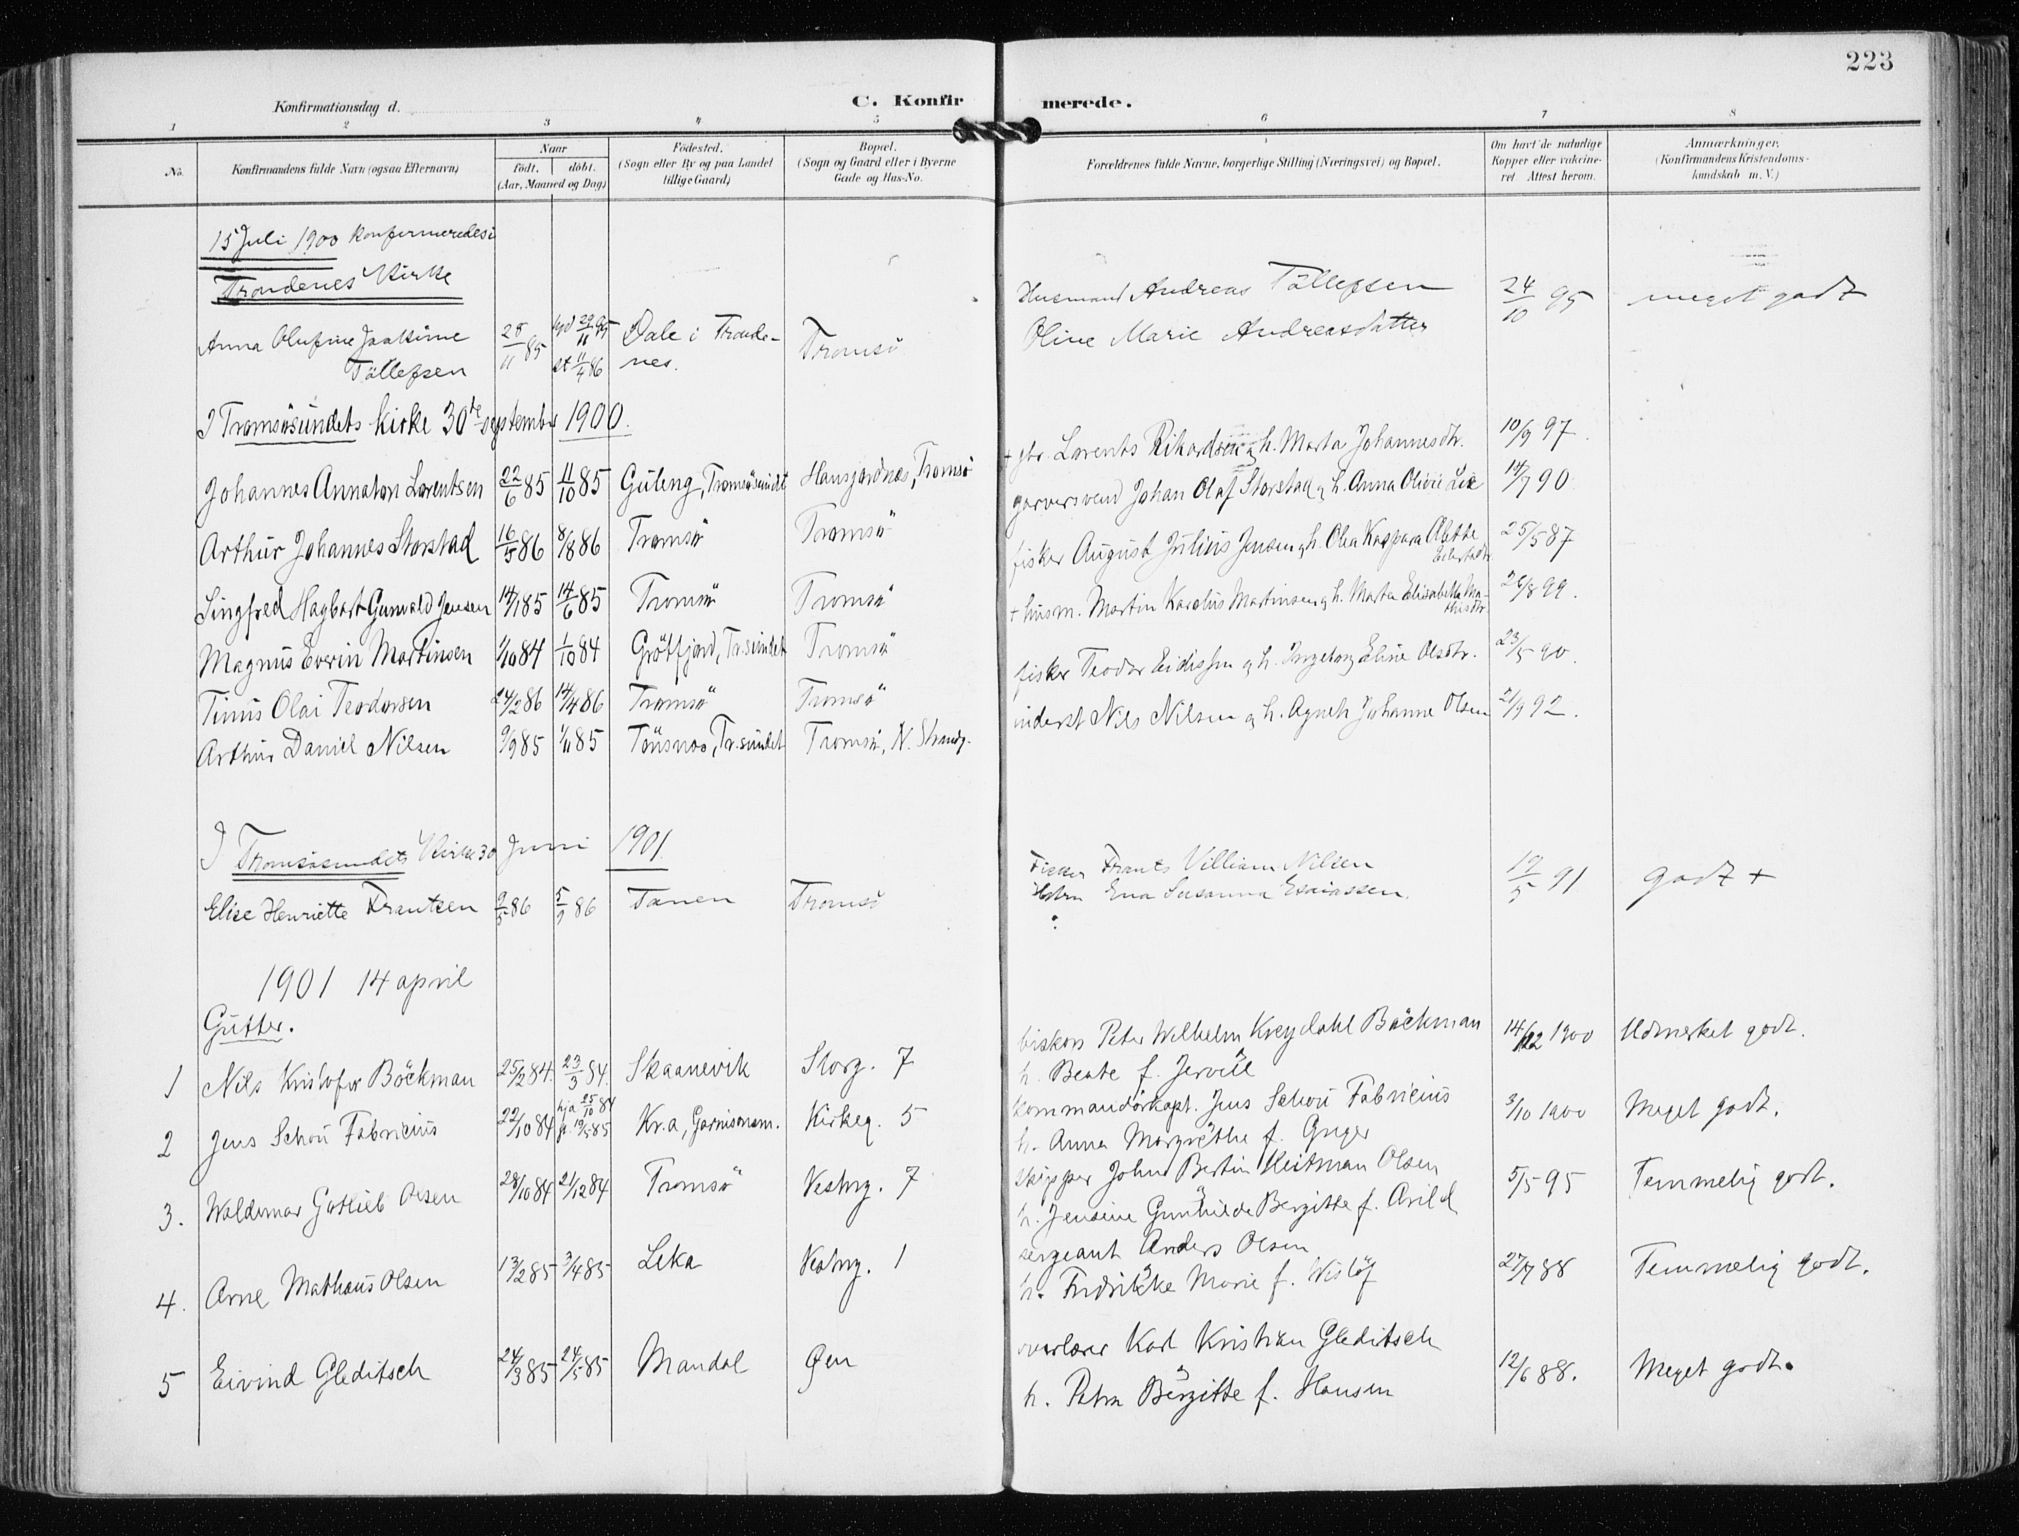 223
Konfirmationsdag d.
C. Konfirmerede.
1 2 3 4 5 6 7 8
No.
Konfirmandens fulde Navn (ogsaa Efternavn)
Naar
födt. döbt.
(Aar, Maaned og Dag)
Födested.
(Sogn eller By og paa Landet
tillige Gaard)
Bopæl.
(Sogn og Gaard eller i Byerne
Gade og Hus-No.
Forældrenes fulde Navne, borgerlige Stilling (Næringsvei) og Bopæl.
Om havt de naturlige
Kopper eller vakcine-
ret Attest herom.
Anmærkninger,
(Konfirmandens Kristendoms-
kundskab m. V.)
15 Juli 1900 konfirmeredes i
Trondenes Kirke
Husmand Andreas Töllefsen 24/10 95 meget godt
Oline Marie Andreasdatter
Anna Olufine Joakime 25/11 85 29/11 85 Dale i Tronde- Tromsö
Töllefsen st 11/4 86 nes.
I Tromsösundets kirke 30te september 1900.
Johannes Annaton Lorentsen 22/6 85 11/10 85 Guleng, Tromsösundet Hansjordnes, Tromsö + gbr. Lorents Rikardsen og h. Marta Johannesdtr. 10/9 97.
Arthur Johannes Storstad 16/5 86 8/8 86 Tromsö Tromsö garversvend Johan Olaf Storstad og h. Anna Olivie Lie 14/7 90.
Singfred Hagbart Gunvald Jensen 14/1 85 14/6 85 Tromsö Tromsö fisker August Julius Jensen og h. Olea Kaspara Alette 25/5 87
Magnus Everin Martinsen 1/10 84 1/10 84 Grötfjord, Tr.sundet Tromsö + husm. Martin Karelius Martinsen og h. Marta Elisabeth Ma- 26/8 99.
Tinus Olai Teodorsen 24/2 86 14/4 86 Tromsö Tromsö fisker Teodor Eidissen og h. Ingeborg Eline Olsdtr. 23/5 90.
Arthur Daniel Nilsen 9/9 85 1/11 85 Tönsnes, Tr.sundet Tromsö, N. Strandg. inderst Nils Nilsen og h. Agneth Johanne Olsen 2/9 92.
I Tromsösundets Kirke 30 Juni 1901
Fisker Frants Villiam Nilsen 19/5 91 godt +
Elise Henriette Frantsen 9/5 86 5/9 86 Tanen Tromsö Hstru Ena Susanna Esaiassen.
1901 14 april
Gutter.
biskop Peter Wilhelm Kreydahl Böckman 14/12 1900 Udmerket godt.
1 Nils Kristofer Böckman 25/2 84. 23/3 84. Skaanevik Storg. 7 h. Beate f. Jervell
kommandörkapt. Jens Schou Fabricius 3/10 1900 Meget godt.
2 Jens Schou Fabricius 22/10 84 hja 25/10 84 Kr.a, Garnisonsm. Kirkeg. 5 h. Anna Margrethe f. Gyger
p. 19/5 85
skipper John Bertin Heitman Olsen 5/5 95 Temmelig godt.
3. Waldemar Gotlieb Olsen 28/10 84 21/12 84 Tromsö Vestreg. 7 h. Jensine Gunhilde Bergitte f. Arild
sergeant Anders Olsen 27/7 88 Temmelig godt.
4. Arne Mathæus Olsen 13/2 85 3/4 85 Leka Vestreg. 1 h. Fredrikke Marie f. Wislöf
overlærer Karl Kristian Gleditsch
5 Eivind Gleditsch 24/3 85 24/5 85 Mandal Øen h. Petra Bergitte f. Hansen 12/6 88. Meget godt.